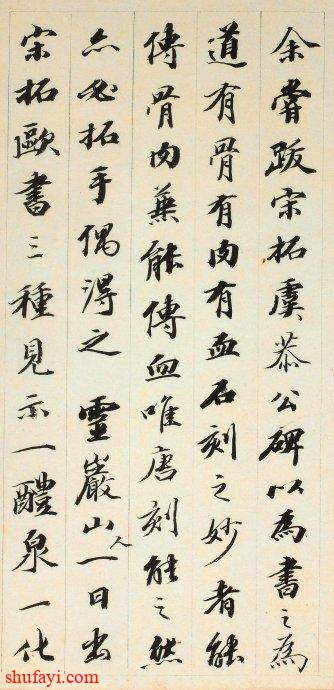 余嘗跋宋拓虞恭公碑以為書之為
道有骨有肉有血石刻之妙者能
傳骨肉兼能傳血唯唐刻能之然
亦必拓手偶得之 靈巖山人一日出
宋拓歐書三種見示一醴泉一化
shufayi.com